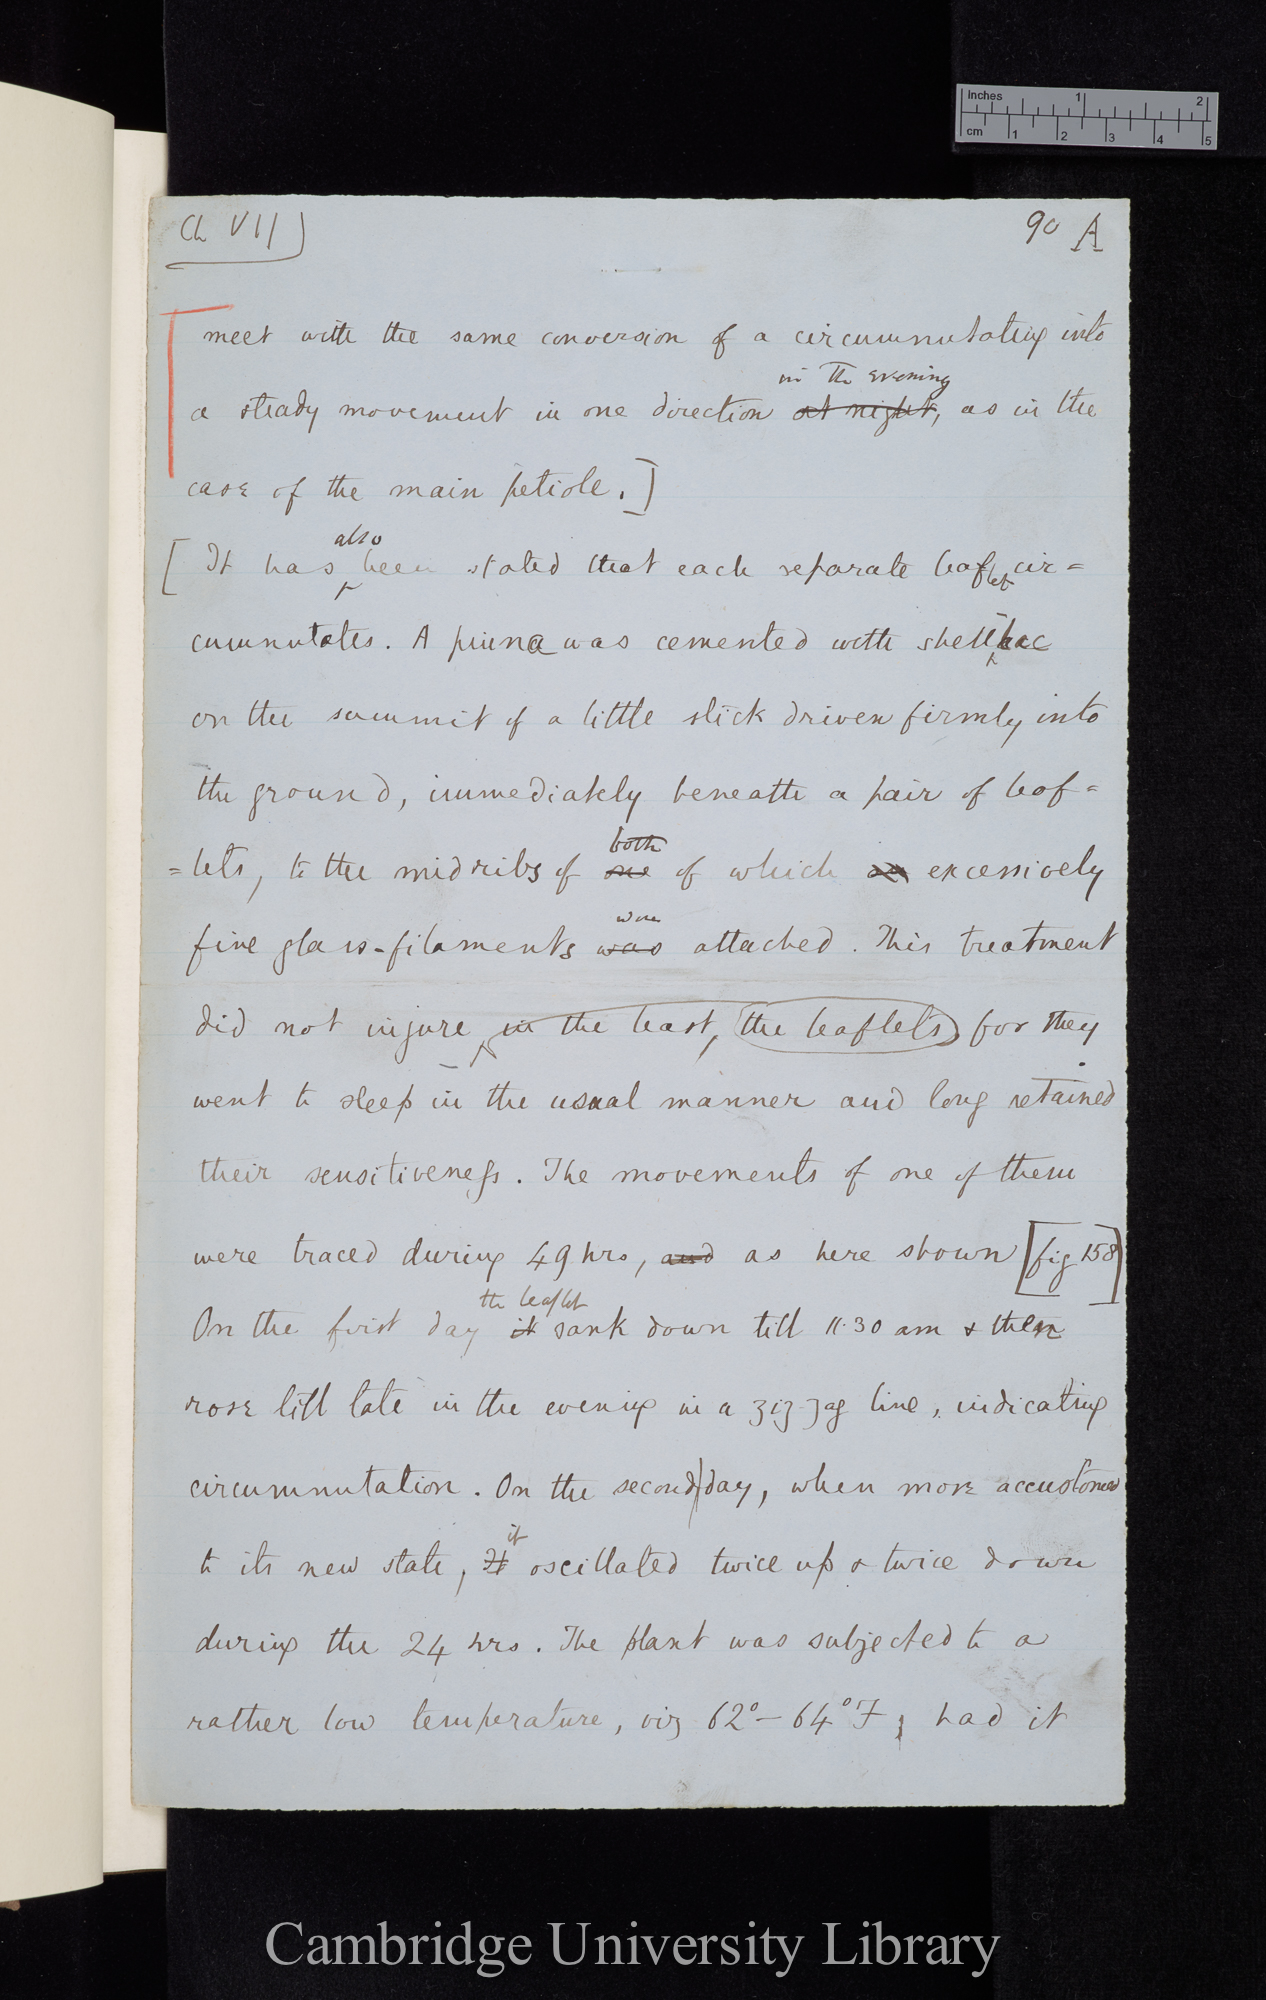 Inches 1 2
cm 1 2 3 4 5
Ch VII)
90 A
meet with the same conversion of a circumnutating into
in the evening
a steady movement in one direction at night, as in the
case of the main petiole.]
also
[It has been stated that each separate leaflet cir=
cumnutates. A pinna was cemented with shell-lac
on the summit of a little stick driven firmly into
the ground, immediately beneath a pair of leaf=
both
=lets, to the midribs of one of which an excessively
were
fine glass-filaments was attached. This treatment
did not injure, in the least, the leaflets, for they
went to sleep in the usual manner and long retained
their sensitiveness. The movements of one of them
were traced during 49 hrs, and as here shown [fig 158]
the leaflet
On the first day it sank down till 11.30 am & then
rose till late in the evening in a zig-zag line, indicating
circumnutation. On the second day, when more accustomed
it
to its new state, It oscillated twice up & twice down
during the 24 hrs. The plant was subjected to a
rather low temperature, viz 62°–64° F; had it
Cambridge University Library